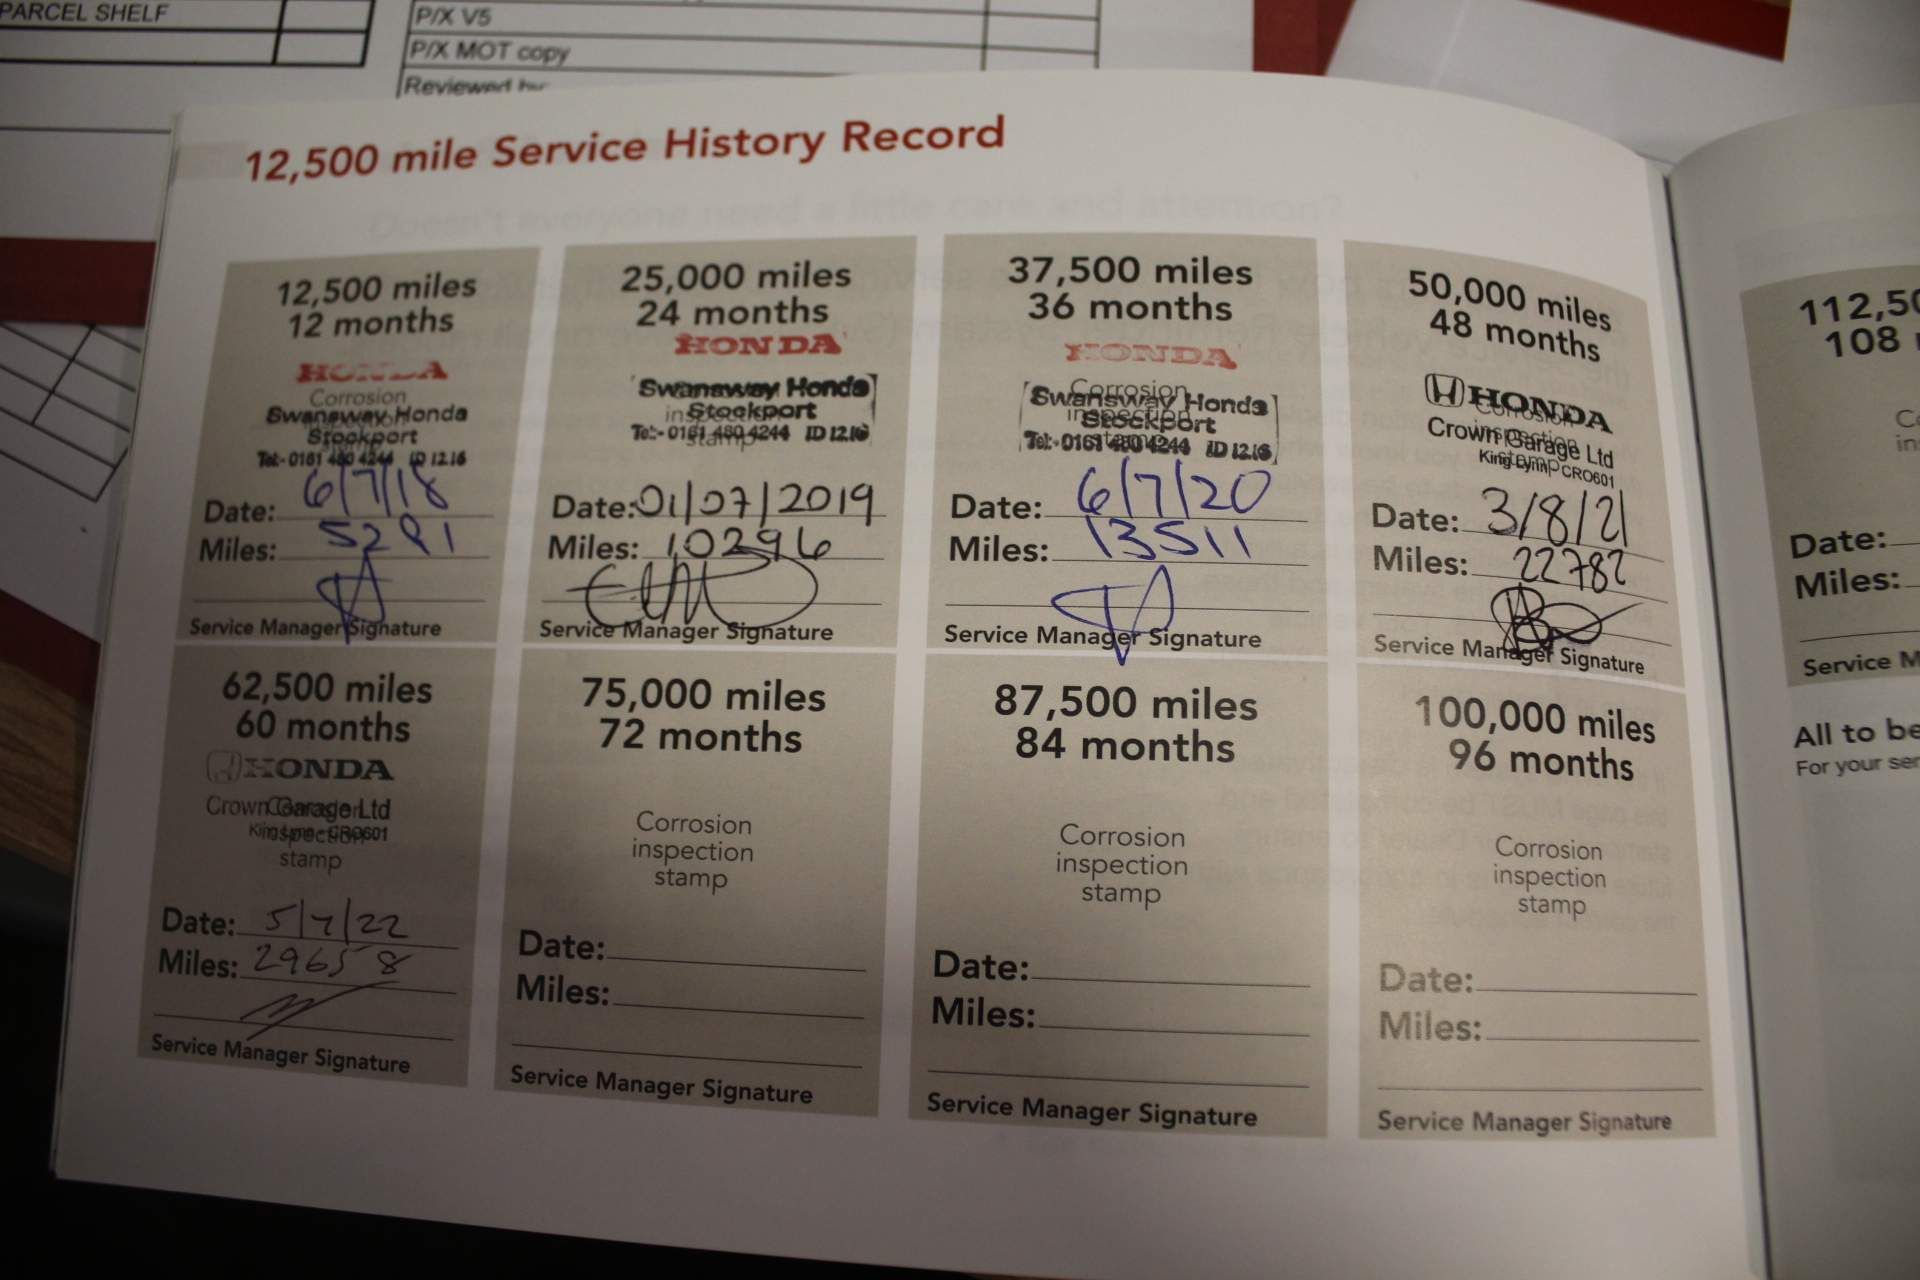 PARCEL SHELF
P/X V5
P/X MOT copy
Reviewed by
12,500 mile Service History Record
12,500 miles
12 months
HONDA
Corrosion
inspection
Swansway Honda
Stockport
Tel:- 0161 480 4244 ID 1216
Date: 6/7/18
Miles: 5291
Service Manager Signature
25,000 miles
24 months
HONDA
Swansway Honda
inspection
Stockport
stamp
Tel:- 0161 480 4244 ID 1216
Date: 01/07/2019
Miles: 10296
Service Manager Signature
37,500 miles
36 months
HONDA
Corrosion
Swansway Honda
inspection
Stockport
stamp
Tel:- 0161 480 4244 ID 1216
Date: 6/7/20
Miles: 13511
Service Manager Signature
50,000 miles
48 months
HONDA
Corrosion
inspection
Crown Garage Ltd
stamp
King Lynn - CRO601
Date: 3/8/21
Miles: 22782
Service Manager Signature
62,500 miles
60 months
HONDA
Crown Garage Ltd
Corrosion
King Lynn - CRO601
inspection
stamp
Date: 5/7/22
Miles: 29658
Service Manager Signature
75,000 miles
72 months
Corrosion
inspection
stamp
Date:
Miles:
Service Manager Signature
87,500 miles
84 months
Corrosion
inspection
stamp
Date:
Miles:
Service Manager Signature
100,000 miles
96 months
Corrosion
inspection
stamp
Date:
Miles:
Service Manager Signature
112,50
108
Co
in
Date:
Miles:
Service M
All to be
For your ser